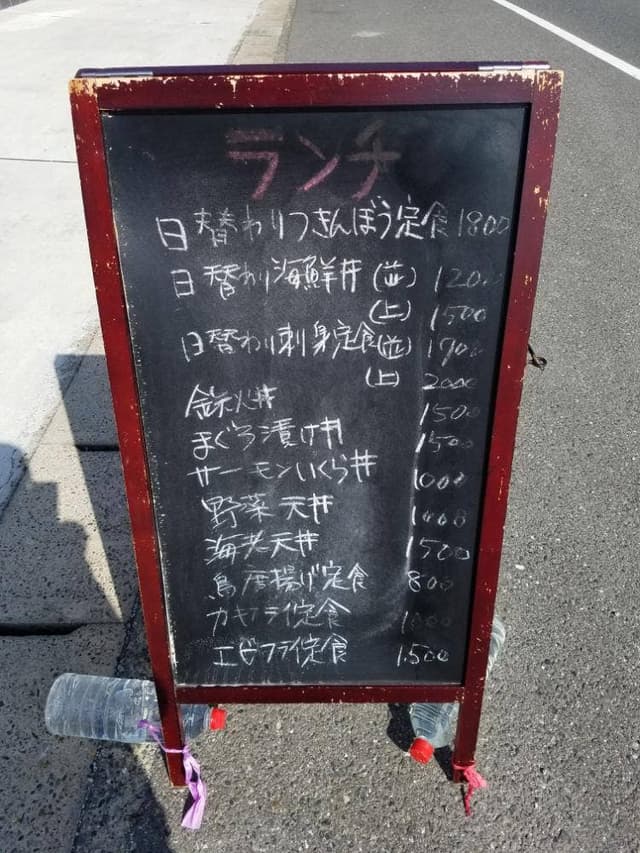 ランチ
日替わりつきんぼう定食 1800
日替わり海鮮丼 (並) 1200
(上) 1500
日替わり刺身定食(並) 1700
(上) 2000
鉄火丼 1500
まぐろ漬け丼 1500
サーモンいくら丼 1000
野菜天丼 1000
海老天丼 1500
鳥唐揚げ定食 800
カキフライ定食 1000
エビフライ定食 1.500